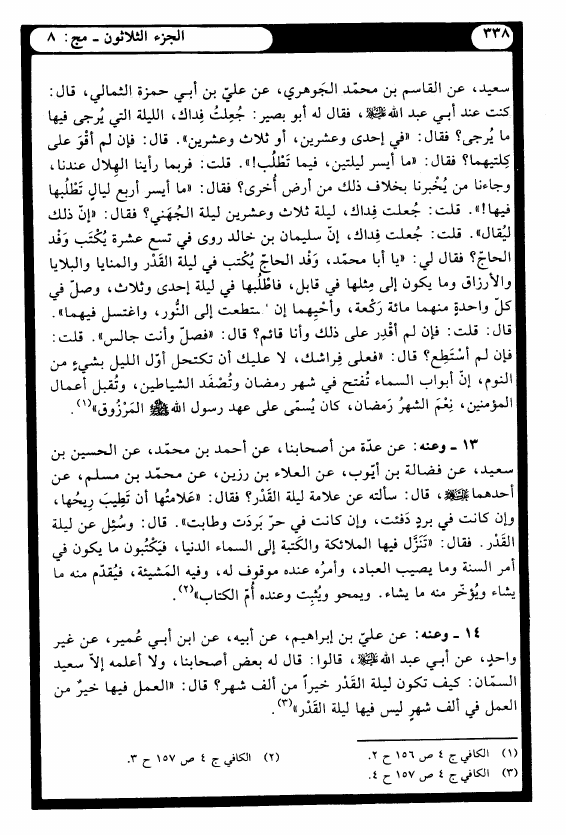 ٣٣٨ الجزء الثلاثون ـ مج: ٨
سعيد، عن القاسم بن محمّد الجَوهري، عن عليّ بن أبي حمزة الثمالي، قال:
كنت عند أبي عبد الله عليه السلام، فقال له أبو بصير: جُعِلتُ فِداك، الليلة التي يُرجى فيها
ما يُرجى؟ فقال: «في إحدى وعشرين، أو ثلاث وعشرين». قال: فإن لم أقْوَ على
كِلتيهما؟ فقال: «ما أيسر ليلتين، فيما تَطْلُب!». قلت: فربما رأينا الهِلال عندنا،
وجاءنا من يُخْبرنا بخلاف ذلك من أرض أُخرى؟ فقال: «ما أيسر أربع ليالٍ تَطْلُبها
فيها!». قلت: جُعلت فِداك، ليلة ثلاث وعشرين ليلة الجُهَني؟ فقال: «إنّ ذلك
ليُقال». قلت: جُعلت فِداك، إنّ سليمان بن خالد روى في تسع عشرة يُكْتَب وَفْد
الحاجّ؟ فقال لي: «يا أبا محمّد، وَفْد الحاجّ يُكْتب في ليلة القَدْر والمنايا والبلايا
والأرزاق وما يكون إلى مِثلها في قابل، فاطْلُبها في ليلة إحدى وثلاث، وصلّ في
كلّ واحدةٍ منهما مائة رَكْعة، وأحْيِهما إن ستطعت إلى النُّور، واغتسل فيهما».
قال: قلت: فإن لم أقْدِر على ذلك وأنا قائم؟ قال: «فصلّ وأنت جالس». قلت:
فإن لم أسْتَطِع؟ قال: «فعلى فِراشك، لا عليك أن تكتحل أوّل الليل بشيءٍ من
النوم، إنّ أبواب السماء تُفتح في شهر رمضان وتُصْفَد الشياطين، وتُقبل أعمال
المؤمنين، نِعْمَ الشهرُ رَمضان، كان يُسمّى على عهد رسول الله ﷺ المَرْزُوق»(١).
١٣ ـ وعنه: عن عدّة من أصحابنا، عن أحمد بن محمّد، عن الحسين بن
سعيد، عن فضالة بن أيّوب، عن العلاء بن رزين، عن محمّد بن مسلم، عن
أحدهما عليهما السلام، قال: سألته عن علامة ليلة القَدْر؟ فقال: «عَلامتُها أن تَطِيبَ رِيحُها،
وإن كانت في بردٍ دَفئت، وإن كانت في حرّ بَردَت وطابت». قال: وسُئِل عن ليلة
القَدْر. فقال: «تَنَزَّل فيها الملائكة والكَتبة إلى السماء الدنيا، فيَكْتُبون ما يكون في
أمر السنة وما يصيب العباد، وأمرُه عنده موقوف له، وفيه المَشيئة، فيُقدّم منه ما
يشاء ويُؤخّر منه ما يشاء. ويمحو ويُثبِت وعنده أُمّ الكتاب»(٢).
١٤ ـ وعنه: عن عليّ بن إبراهيم، عن أبيه، عن ابن أبي عُمير، عن غير
واحدٍ، عن أبي عبد الله عليه السلام، قالوا: قال له بعض أصحابنا، ولا أعلمه إلاّ سعيد
السمّان: كيف تكون ليلة القَدْر خيراً من ألف شهر؟ قال: «العمل فيها خيرٌ من
العمل في ألف شهرٍ ليس فيها ليلة القَدْر»(٣).
(١) الكافي ج ٤ ص ١٥٦ ح ٢. (٢) الكافي ج ٤ ص ١٥٧ ح ٣.
(٣) الكافي ج ٤ ص ١٥٧ ح ٤.